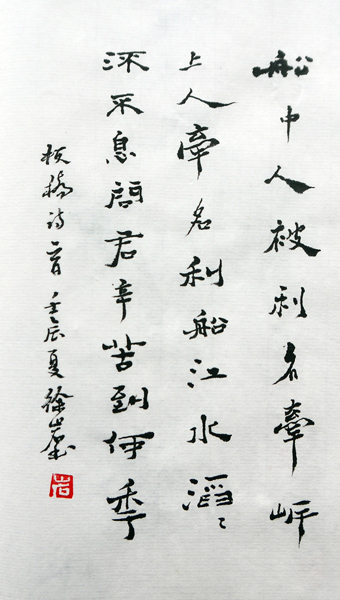 船中人被利名牽岸
上人牽名利船江水滔々
流不息問君辛苦到何年
板橋诗一首壬辰夏徐岩
岩